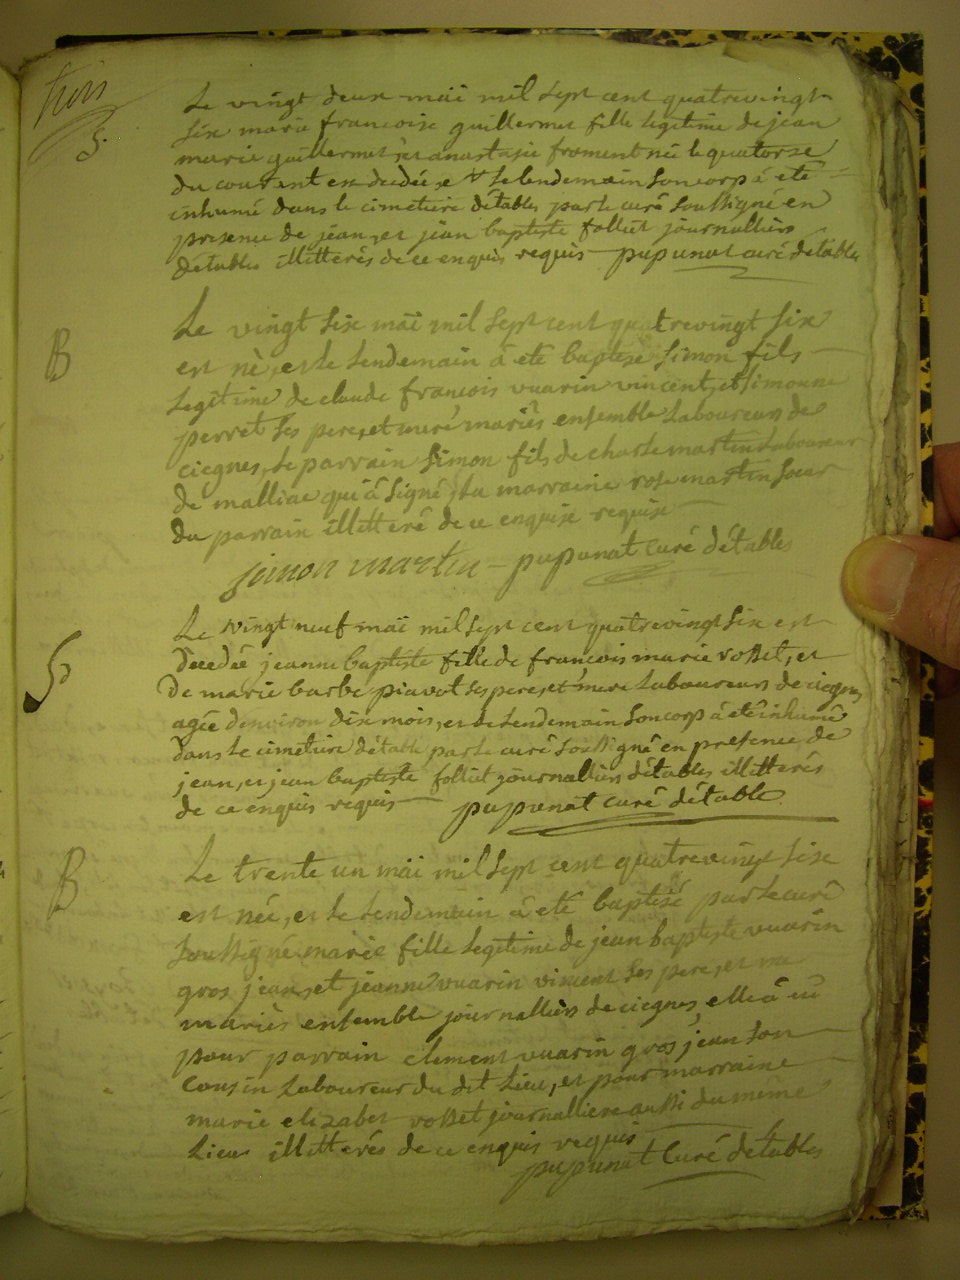 trois
S.
Le vingt deux mai mil sept cent quatrevingt
six marie francoise guillermet fille legitime de jean
marie guillermet et anastasie froment née le quatorse
du courent est decedée et le lendemain son corp à eté
inhumé dans le cimetiere détables par le curé soussigné en
presence de jean, et jean baptiste folliet journalliers
détables illitterés de ce enquis requis pupunat curé détables
B
Le vingt six mai mil sept cent quatrevingt six
est né, et le lendemain à eté baptisé simon fils
legitime de claude francois vuarin vincent, et simonne
perret ses pere, et mere mariés ensemble laboureurs de
ciegnes, le parrain simon fils de charle martin laboureur
de malliac qui à signé, la marraine rose martin soeur
du parrain illitteré de ce enquise requise
simon martin pupunat curé détables
S
Le vingt neuf mai mil sept cent quatrevingt six est
decedée jeanne baptiste fille de francois marie rosset, et
de marie barbe piavot ses pere, et mere laboureurs de ciegnes
agée denviron dix mois, et le lendemain son corp à eté inhumé
dans le cimetiere détable par le curé soussigné en presence de
jean, et jean baptiste folliet journalliers détables illitterés
de ce enquis requis pupunat curé détable
B
Le trente un mai mil sept cent quatrevingt six
est née, et le lendemain à eté baptisé par le curé
soussigné marie fille legitime de jean baptiste vuarin
gros jean, et jeanne vuarin vincent ses pere, et me
mariés ensemble journalliers de ciegnes, elle à eu
pour parrain clement vuarin gros jean son
cousin laboureur du dit lieu, et pour marraine
marie elizabet rosset journalliere aussi du même
lieu illitterés de ce enquis requis
pupunat curé détables